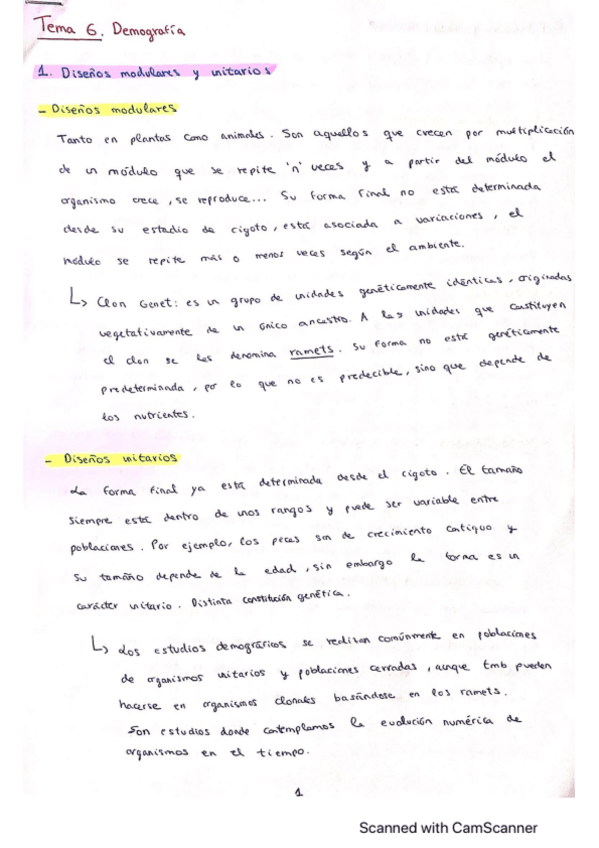 Tema 6. Demografía
1. Diseños modulares y unitarios
- Diseños modulares
Tanto en plantas como animales. Son aquellos que crecen por multiplicación
de un módulo que se repite 'n' veces y a partir del módulo el
organismo crece, se reproduce... Su forma final no está determinada
desde su estadio de cigoto, está asociada a variaciones, el
módulo se repite más o menos veces según el ambiente.
↳ Clon Genet: es un grupo de unidades genéticamente idénticas, originadas
vegetativamente de un único ancestro. A las unidades que constituyen
el clon se les denomina ramets. Su forma no está genéticamente
predeterminada, por lo que no es predecible, sino que depende de
los nutrientes.
- Diseños unitarios
La forma final ya está determinada desde el cigoto. El tamaño
siempre está dentro de unos rangos y puede ser variable entre
poblaciones. Por ejemplo, los peces son de crecimiento contiguo y
su tamaño depende de la edad, sin embargo la forma es un
carácter unitario. Distinta constitución genética.
↳ Los estudios demográficos se realizan comúnmente en poblaciones
de organismos unitarios y poblaciones cerradas, aunque tmb pueden
hacerse en organismos clonales basándose en los ramets.
Son estudios donde contemplamos la evolución numérica de
organismos en el tiempo.
1
Scanned with CamScanner